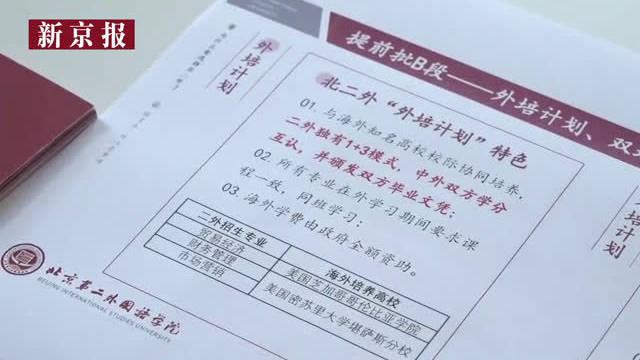 新京报
外培计划
提前批B段——外培计划、双
北二外“外培计划”特色
01. 与海外知名高校校际协同培养，
二外独有1+3模式，中外双方学分
互认，并颁发双方毕业文凭；
02. 所有专业在外学习期间要求课
程一致，同班学习；
03. 海外学费由政府全额资助。
二外招生专业
海外培养高校
贸易经济
美国芝加哥哥伦比亚学院
财务管理
美国密苏里大学堪萨斯分校
市场营销
外培计划
北京第二外国语学院
BEIJING INTERNATIONAL STUDIES UNIVERSITY